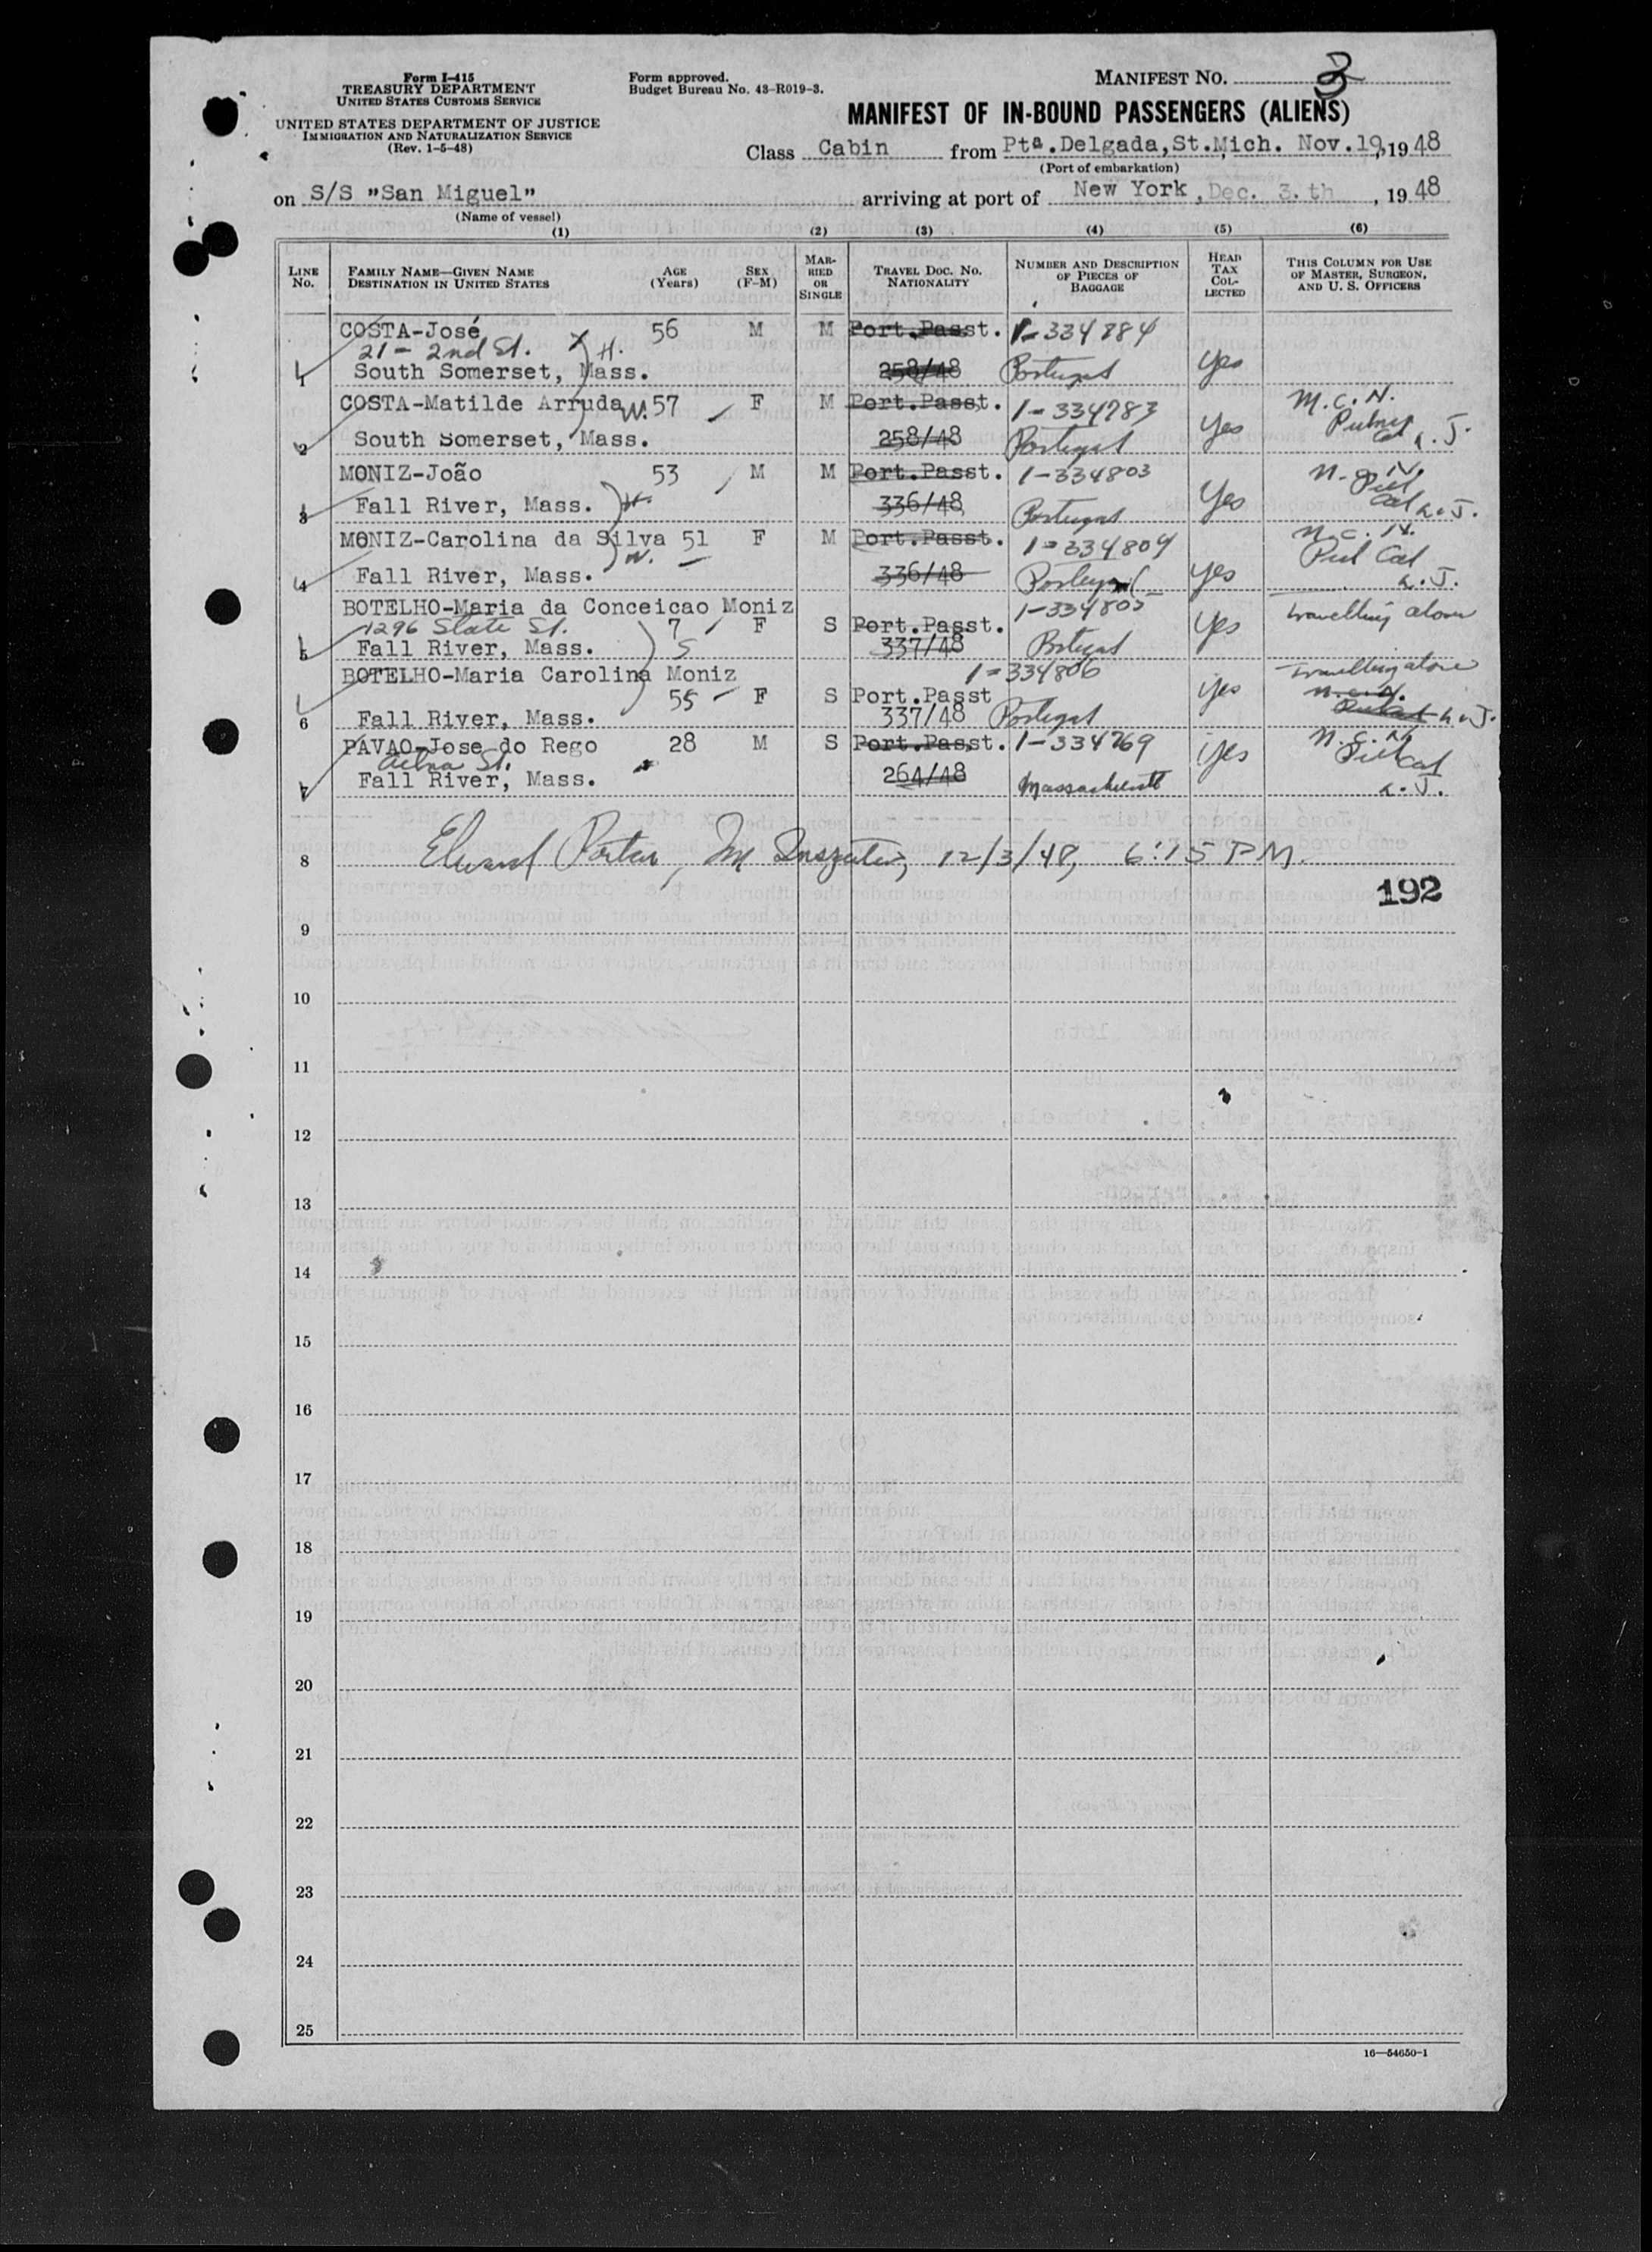 Form I-415
TREASURY DEPARTMENT
UNITED STATES CUSTOMS SERVICE
UNITED STATES DEPARTMENT OF JUSTICE
IMMIGRATION AND NATURALIZATION SERVICE
(Rev. 1-5-48)
Form approved.
Budget Bureau No. 43-R019-3.
MANIFEST NO. 3
MANIFEST OF IN-BOUND PASSENGERS (ALIENS)
Class Cabin from Ptª.Delgada,St.Mich. Nov.19,1948
(Port of embarkation)
on S/S "San Miguel" arriving at port of New York, Dec. 3.th, 1948
(Name of vessel)
(1) (2) (3) (4) (5) (6)
LINE No. FAMILY NAME—GIVEN NAME DESTINATION IN UNITED STATES AGE (Years) SEX (F-M) MARRIED OR SINGLE TRAVEL DOC. NO. NATIONALITY NUMBER AND DESCRIPTION OF PIECES OF BAGGAGE HEAD TAX COLLECTED THIS COLUMN FOR USE OF MASTER, SURGEON, AND U. S. OFFICERS
COSTA-José 56 M M Port.Passt. 1-334784
21 - 2nd St. H.
1 South Somerset, Mass. 258/48 Portugal Yes
COSTA-Matilde Arruda W. 57 F M Port.Passt. 1-334783 M.C.N.
2 South Somerset, Mass. 258/48 Portugal Yes L.J.
MONIZ-João 53 M M Port.Passt. 1-334803
3 Fall River, Mass. H. 336/48 Portugal Yes L.J.
MONIZ-Carolina da Silva 51 F M Port.Passt. 1-334804 M.C.N.
4 Fall River, Mass. W. 336/48 Portugal Yes L.J.
BOTELHO-Maria da Conceicao Moniz 1-334805 travelling alone
1296 State St. 7 F S Port.Passt. Yes
5 Fall River, Mass. S 337/48 Portugal
BOTELHO-Maria Carolina Moniz 1-334806 Travelling alone
55 F S Port.Passt Yes
6 Fall River, Mass. 337/48 Portugal L.J.
PAVAO-Jose do Rego 28 M S Port.Passt. 1-334769 Yes M.C.N.
Aetna St.
7 Fall River, Mass. 264/48 Massachusetts L.J.
8 Edward Porter, Im Inspector, 12/3/48, 6:15 PM.
192
9
10
11
12
13
14
15
16
17
18
19
20
21
22
23
24
25
16—54650-1